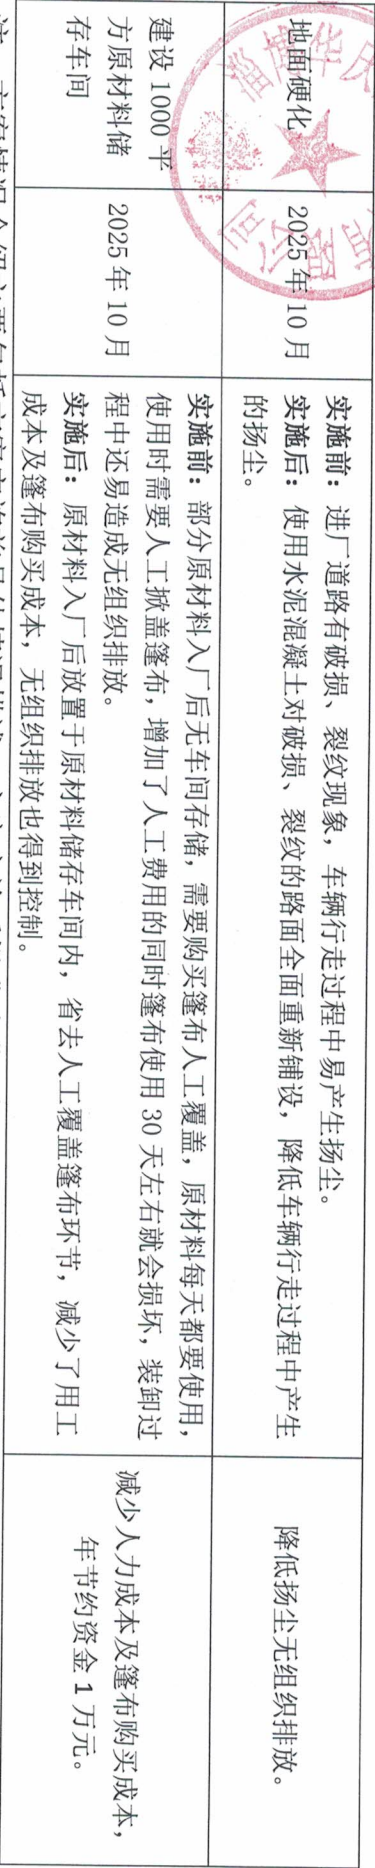 地面硬化
2025年10月
实施前：进厂道路有破损、裂纹现象，车辆行走过程中易产生扬尘。
实施后：使用水泥混凝土对破损、裂纹的路面全面重新铺设，降低车辆行走过程中产生
的扬尘。
降低扬尘无组织排放。
建设1000平
方原材料储
存车间
2025年10月
实施前：部分原材料入厂后无车间存储，需要购买篷布人工覆盖，原材料每天都要使用，
使用时需要人工掀盖篷布，增加了人工费用的同时篷布使用30天左右就会损坏，装卸过
程中还易造成无组织排放。
实施后：原材料入厂后放置于原材料储存车间内，省去人工覆盖篷布环节，减少了用工
成本及篷布购买成本，无组织排放也得到控制。
减少人力成本及篷布购买成本，
年节约资金1万元。